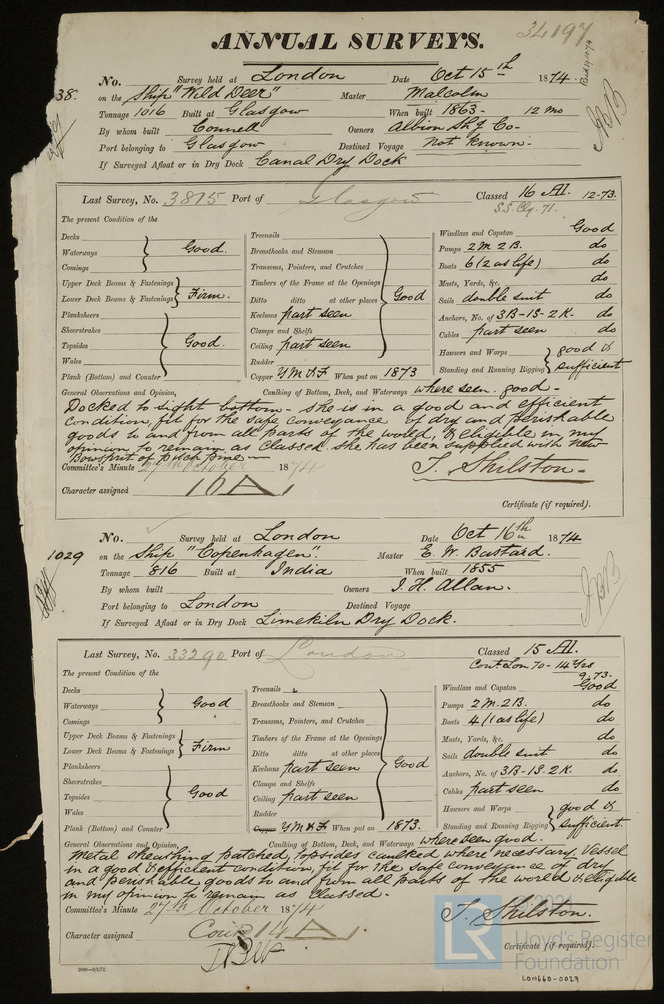 34197
ANNUAL SURVEYS.
No. Survey held at London Date Oct 15th 1874.
38. on the Ship "Wild Deer" Master Malcolm
Tonnage 1016 Built at Glasgow When built 1863- 12 mo
By whom built Connell Owners Albion Shg Co-
Port belonging to Glasgow Destined Voyage Not known-
If Surveyed Afloat or in Dry Dock Canal Dry Dock
Last Survey, No. 3815 Port of Glasgow Classed 16 A1. 12-73.
The present Condition of the
Decks
Waterways Good.
Comings
Upper Deck Beams & Fastenings
Lower Deck Beams & Fastenings Firm.
Planksheers
Sheerstrakes
Topsides Good.
Wales
Plank (Bottom) and Counter
Treenails
Breasthooks and Stemson
Transoms, Pointers, and Crutches
Timbers of the Frame at the Openings
Ditto ditto at other places Good
Keelsons part seen
Clamps and Shelfs
Ceiling part seen
Rudder
Copper YM&F When put on 1873
Windlass and Capstan Good
Pumps 2 M 2 B. do
Boats 6 (2 as life) do
Masts, Yards, &c. do
Sails double suit do
Anchors, No. of 3B-1S-2K- do
Cables part seen do
Hawsers and Warps good &
Standing and Running Rigging sufficient
General Observations and Opinion, Caulking of Bottom, Deck, and Waterways where seen. good-
Docked to sight bottom- she is in a good and efficient
condition, fit for the safe conveyance of dry and perishable
goods to and from all parts of the world, & eligible in my
opinion to remain as classed. She has been supplied with new
Bowsprit of pitch pine-
Committee's Minute 27th October 1874
T. Shilston-
Character assigned 16 A1
Certificate (if required).
No. Survey held at London Date Oct 16th 1874
1029 on the Ship "Copenhagen". Master E. W. Bastard.
Tonnage 816 Built at India When built 1855
By whom built Owners I. H. Allan.
Port belonging to London Destined Voyage
If Surveyed Afloat or in Dry Dock Limekiln Dry Dock.
Last Survey, No. 33290 Port of London Classed 15 A1.
Cont Lon 70-14 Yrs
9.73.
The present Condition of the
Decks
Waterways Good
Comings
Upper Deck Beams & Fastenings
Lower Deck Beams & Fastenings Firm
Planksheers
Sheerstrakes
Topsides Good
Wales
Plank (Bottom) and Counter
Treenails
Breasthooks and Stemson
Transoms, Pointers, and Crutches
Timbers of the Frame at the Openings
Ditto ditto at other places Good
Keelsons part seen
Clamps and Shelfs
Ceiling part seen
Rudder
Copper YM&F When put on 1873.
Windlass and Capstan Good
Pumps 2 M. 2 B. do
Boats 4 (1 as life) do
Masts, Yards, &c. do
Sails double suit do
Anchors, No. of 3B-1S-2K. do
Cables part seen do
Hawsers and Warps good &
Standing and Running Rigging sufficient.
General Observations and Opinion, Caulking of Bottom, Deck, and Waterways where seen good.
Metal sheathing patched, topsides caulked where necessary, Vessel
in a good & efficient condition, fit for the safe conveyance of dry
and perishable goods to and from all parts of the world & eligible
in my opinion to remain as classed-
Committee's Minute 27th October 1874
T. Shilston.
Character assigned Cont 14 A1
Certificate (if required).
2000-3/3/72.
LR
©2021
Lloyd's Register
Foundation
LON660-0027